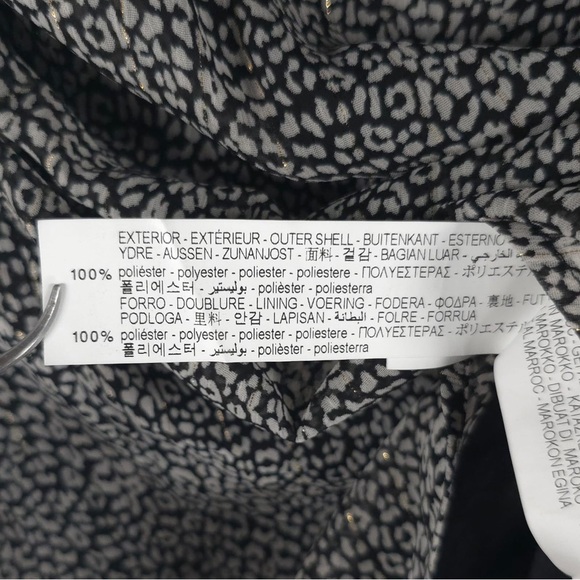 EXTERIOR - EXTÉRIEUR - OUTER SHELL - BUITENKANT - ESTERNO
YDRE - AUSSEN - ZUNANJOST - 面料 - 겉감 - BAGIAN LUAR - الخارجي
100% poliéster - polyester - poliester - poliestere - ΠΟΛΥΕΣΤΕΡΑΣ - ポリエステル
폴리에스터 - بوليستير - polièster - poliesterra
FORRO - DOUBLURE - LINING - VOERING - FODERA - ΦΟΔΡΑ - 裏地 - FUT
PODLOGA - 里料 - 안감 - LAPISAN - البطانة - FOLRE - FORRUA
100% poliéster - polyester - poliester - poliestere - ΠΟΛΥΕΣΤΕΡΑΣ - ポリエステル
폴리에스터 - بوليستير - polièster - poliesterra
MAROKKO - KA
MAROKKO - DIBUAT DI MAROKO
MARROC - MAROKON EGINA